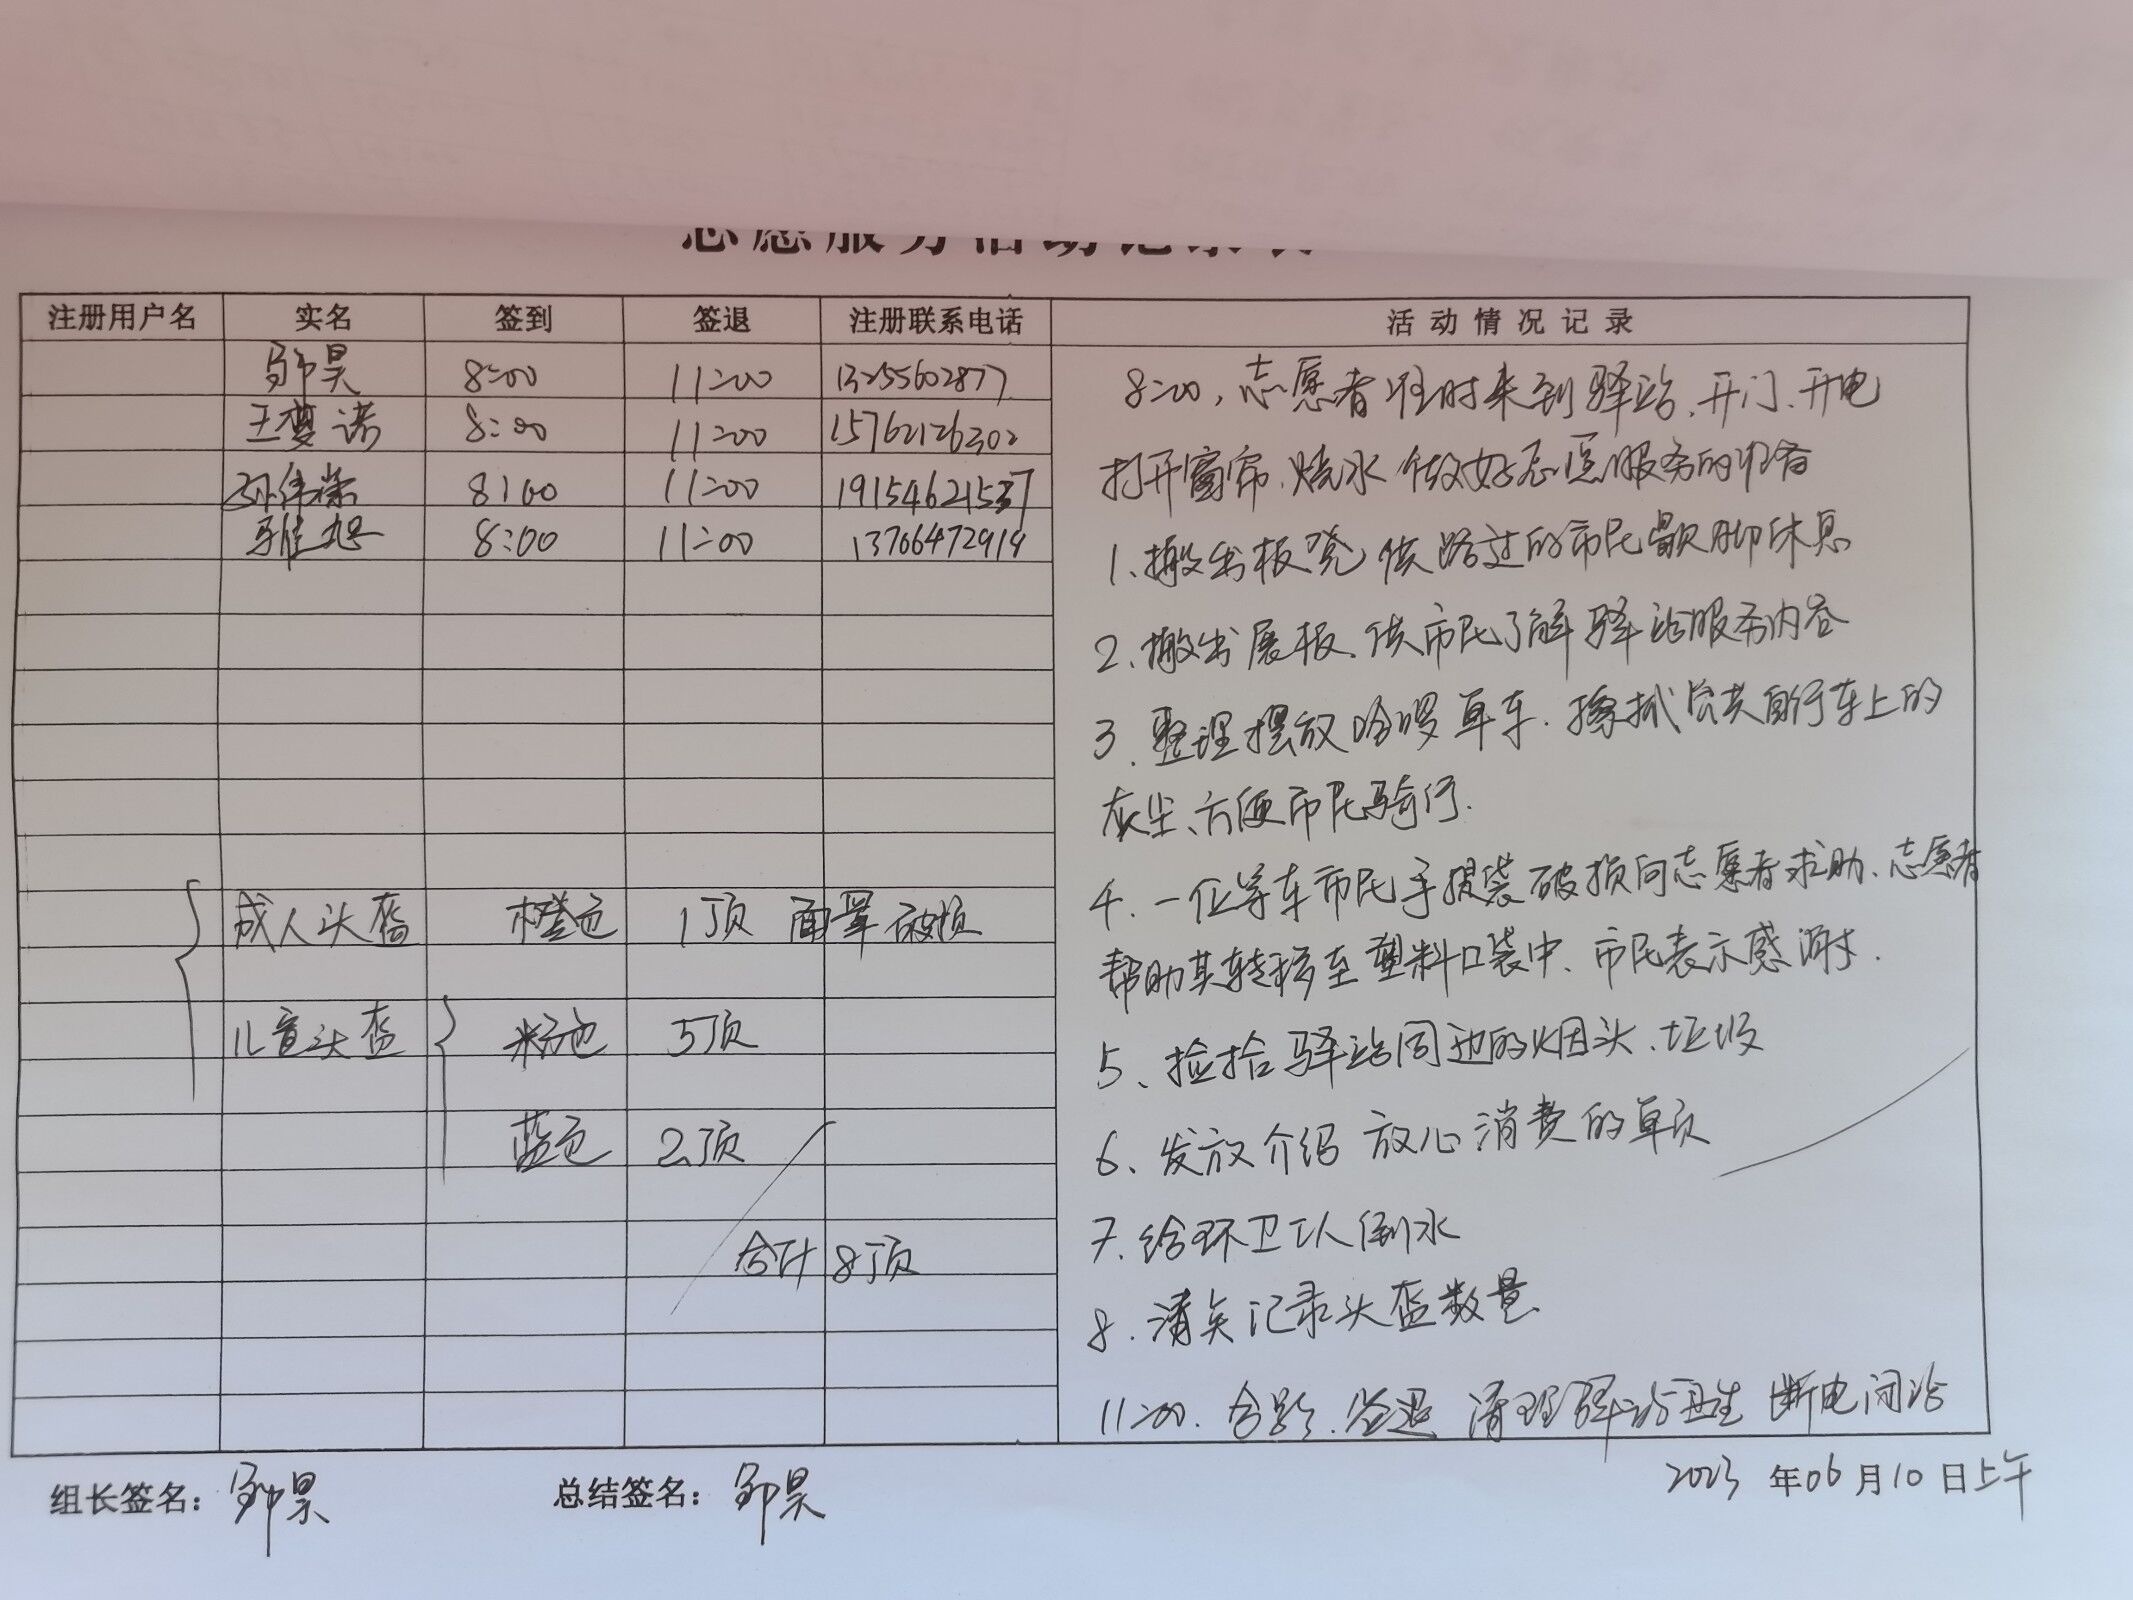 志愿服务活动记录表
注册用户名 实名 签到 签退 注册联系电话 活动情况记录
昊 8:00 11:00 13255602877
王 诺 8:00 11:00 15762126302
孙伟 8:00 11:00 19154621537
8:00 11:00 13706472919
成人头盔 橙色 1顶 面罩破损
儿童头盔 粉色 5顶
蓝色 2顶
合计 8顶
8:00,志愿者准时来到驿站、开门、开电
打开窗帘、烧水 做好志愿服务的准备
1、搬出板凳 供路过的市民歇脚休息
2、搬出展板、供市民了解驿站服务内容
3、整理摆放哈啰单车、擦拭公共自行车上的
灰尘、方便市民骑行.
4、一位等车市民手提袋破损向志愿者求助、志愿者
帮助其转移至塑料口袋中、市民表示感谢.
5、捡拾驿站周边的烟头、垃圾
6、发放介绍放心消费的单页
7、给环卫工人倒水
8、清点记录头盔数量
11:00、合影、签退 清理驿站卫生 断电闭站
组长签名: 昊 总结签名: 昊 2023年06月10日上午